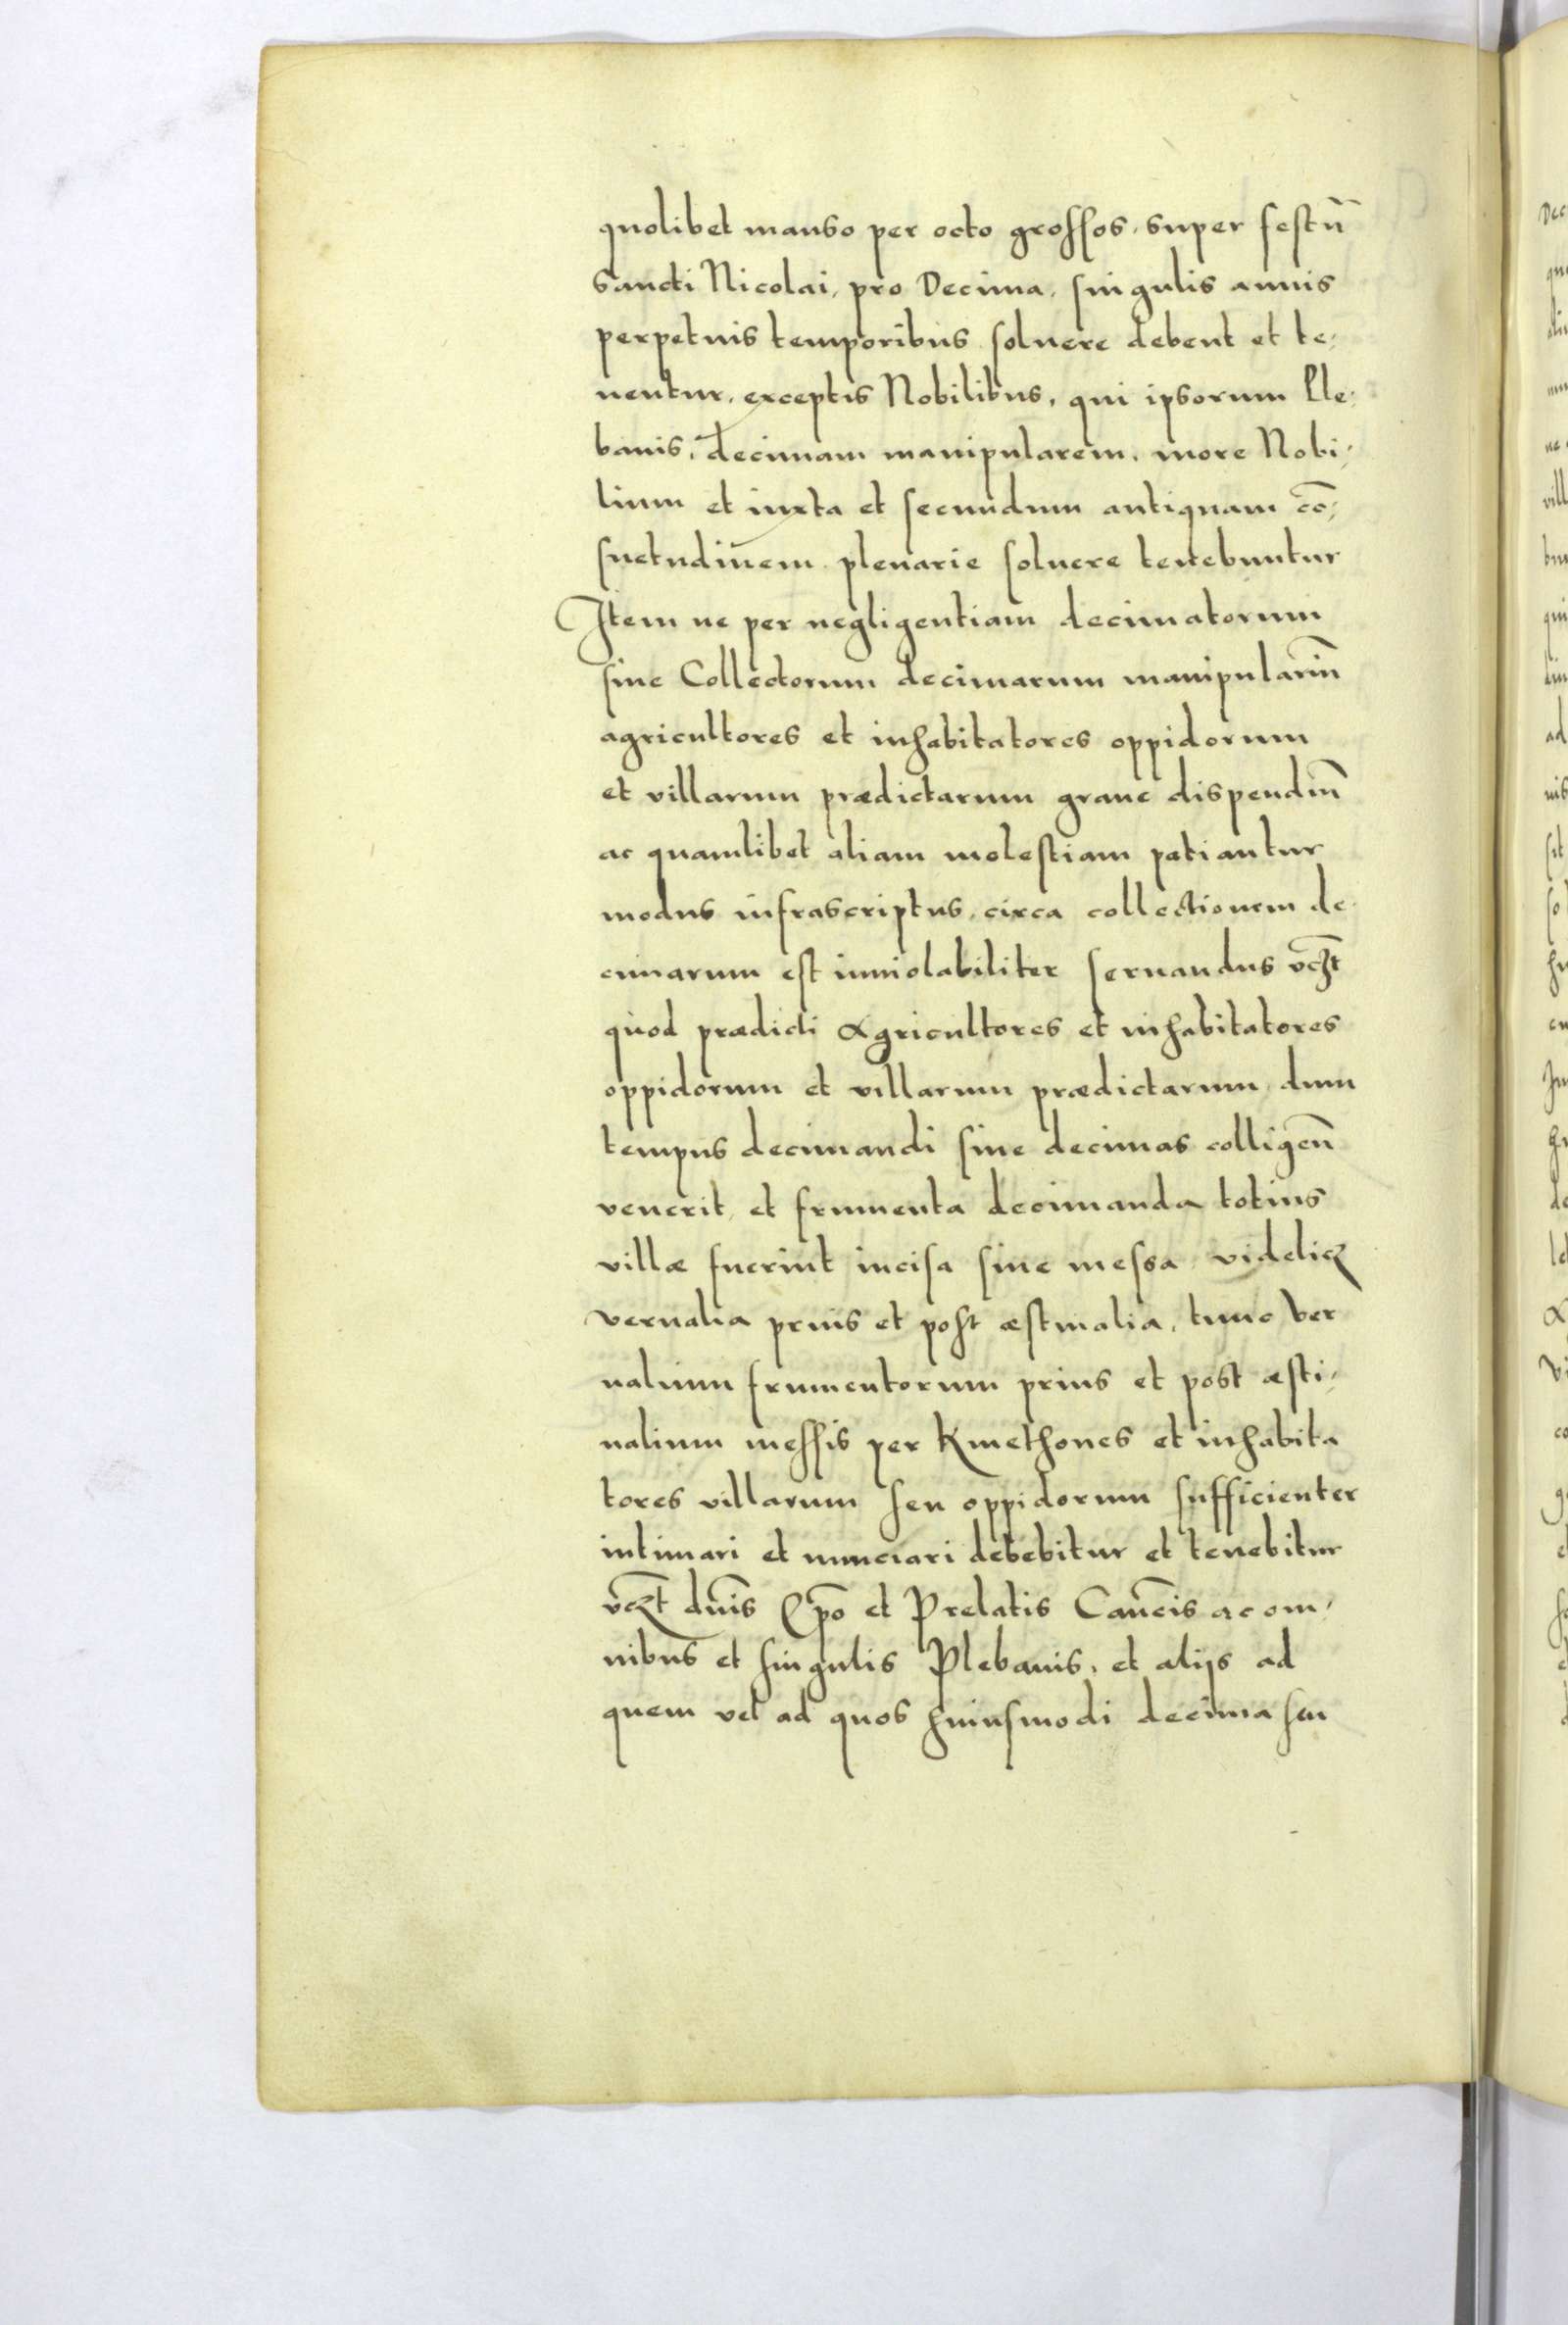 quolibet manso per octo grossos, super festū
Sancti Nicolai, pro Decima, singulis annis
perpetuis temporibus soluere debent et te-
nentur, exceptis Nobilibus, qui ipsorum Ple-
banis, decimam manipularem, more Nobi-
lium et iuxta et secundum antiquam cō-
suetudinem plenarie soluere tenebuntur
Item ne per negligentiam decimatorum
siue Collectorum decimarum manipulariū
agricultores et inhabitatores oppidorum
et villarum prædictarum graue dispendiū
ac quamlibet aliam molestiam patiantur
modus infrascriptus, circa collectionem de
cimarum est inuiolabiliter seruandus vcꝫt
quod prædicti Agricultores et inhabitatores
oppidorum et villarum prædictarum, dum
tempus decimandi siue decimas colligeñ
venerit, et frumenta decimanda totius
villæ fuerint incisa siue messa videlicꝫ
vernalia prius et post æstiualia, tunc ver
nalium frumentorum prius et post æsti-
ualium messis per Kmethones et inhabita
tores villarum seu oppidorum sufficienter
intimari et nunciari debebitur et tenebitur
vcꝫt dn̄is Ep̄o et Prelatis Canōcis ac om-
nibus et singulis Plebanis, et alijs ad
quem vel ad quos huiusmodi decima seu